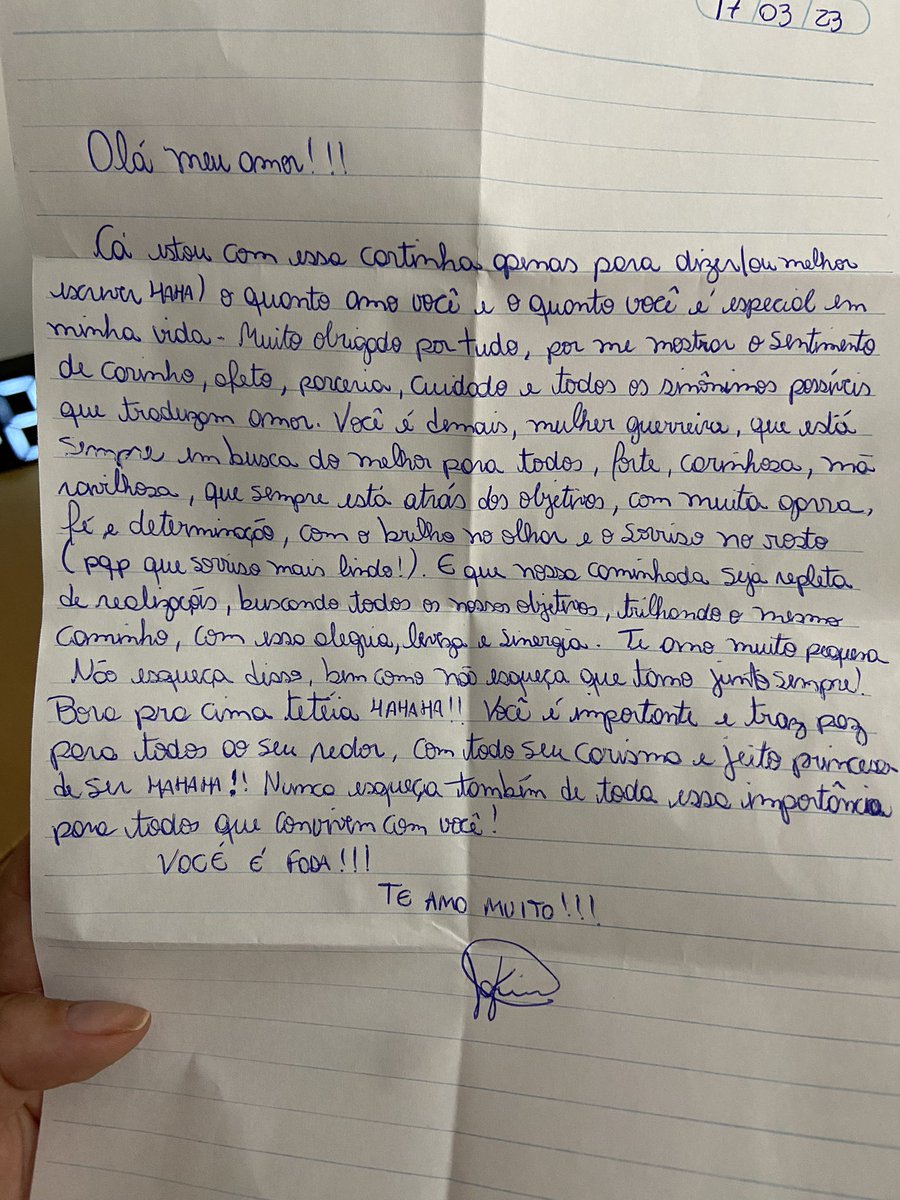 17/03/23
Olá meu amor!!!
Cá estou com essa cartinha apenas para dizer(ou melhor
escrever HAHA) o quanto amo você e o quanto você é especial em
minha vida. Muito obrigado por tudo, por me mostrar o sentimento
de carinho, afeto, parceria, cuidado e todos os sinônimos possíveis
que traduzam amor. Você é demais, mulher guerreira, que está
sempre em busca do melhor para todos, forte, carinhosa, ma
ravilhosa, que sempre está atrás dos objetivos, com muita garra,
fé e determinação, com o brilho no olhar e o sorriso no rosto
(pqp que sorriso mais lindo!). E que nossa caminhada seja repleta
de realizações, buscando todos os nossos objetivos, trilhando o mesmo
caminho, com essa alegria, leveza e sinergia. Te amo muito pequena
Não esqueça disso, bem como não esqueça que tamo junto sempre!
Bora pra cima tetéia HAHAHA!! Você é importante e traz paz
para todos ao seu redor, com todo seu carisma e jeito princesa
de ser HAHAHA!! Nunca esqueça também de toda essa importância
para todos que convivem com você!
VOCÊ É FODA!!!
TE AMO MUITO!!!